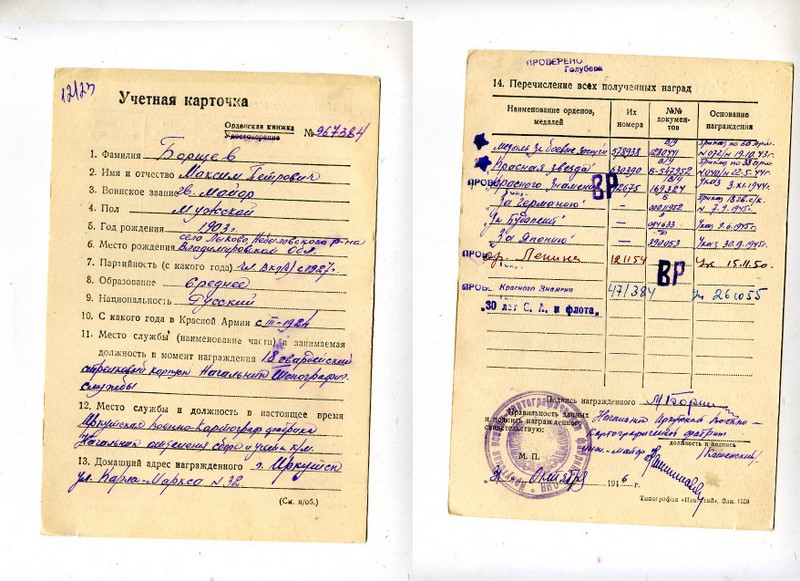 12/23
Учетная карточка
Орденская книжка
Удостоверение №967384
1. Фамилия Борщев
2. Имя и отчество Максим Петрович
3. Воинское звание гв. Майор
4. Пол Мужской
5. Год рождения 1903 г.
село Лыково, Небыловского р-на
6. Место рождения Владимировской Обл.
7. Партийность (с какого года) чл. ВКП(б) с 1927 г.
8. Образование Среднее
9. Национальность Русский
10. С какого года в Красной Армии с III-1924
11. Место службы (наименование части) и занимаемая
должность в момент награждения 18 гвардейский
стрелковый корпус Начальник Топографич.
службы
12. Место службы и должность в настоящее время
Иркутская Военно-картограф фабрика
Начальник отделения сбора и
13. Домашний адрес награжденного г. Иркутск
ул. Карла-Маркса № 32
(См. н/об.)
ПРОВЕРЕНО
Голубева
14. Перечисление всех полученных наград
Наименование орденов, медалей Их номера №№ документов Основание награждения
Медаль За боевые заслуги 578938 Приказ по
№ 072/н 19.10.43г.
Красная звезда 630390 Б-547952 Приказ по
№ 040/н 22.5.44г.
ПРОВЕ Красного Знамени ВР 169384 Указ 3.XI.1944г.
За Германию Приказ
№ 7.9.1945г.
За Будапешт — Указ 9.6.1945г.
За Японию — Указ 30.9.1945г.
ПРОВЕ Ор. Ленина 121154 ВР Ук 15.11.50.
ПРОВЕ Красного Знамени 471384 Ук 261055
„30 лет С. А. и флота.
Подпись награжденного
Правильность данных
и подпись награжденного
свидетельствую:
Начальник Иркутской Военно-
Картографической фабрики
должность и подпись
Инж.-майор
М. П.
Октября 1946 г.
Типография